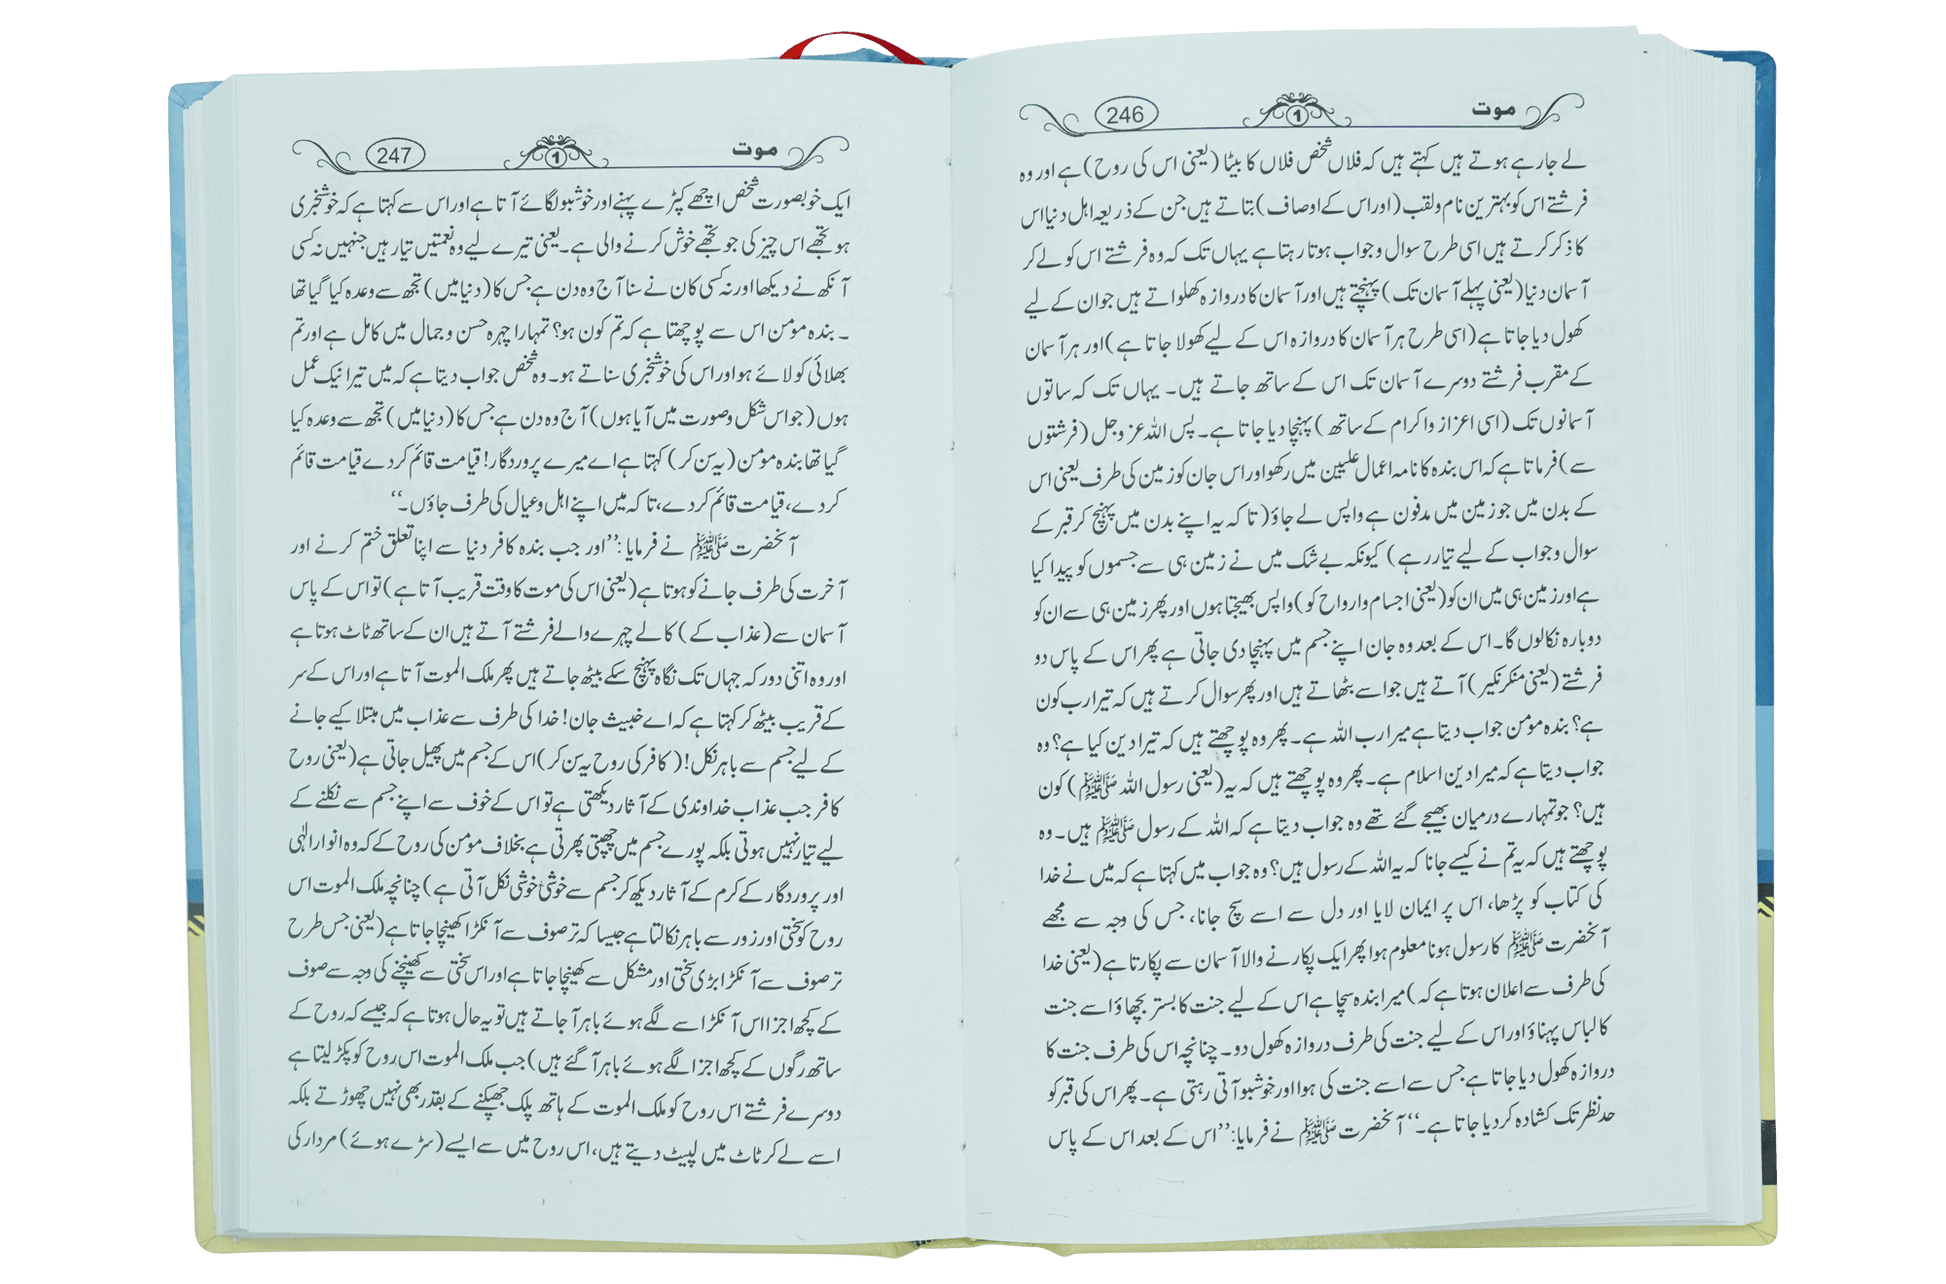 موت 1 246
لے جا رہے ہوتے ہیں کہتے ہیں کہ فلاں شخص فلاں کا بیٹا (یعنی اس کی روح) ہے اور وہ
فرشتے اس کو بہترین نام ولقب (اور اس کے اوصاف) بتاتے ہیں جن کے ذریعہ اہل دنیا اس
کا ذکر کرتے ہیں اسی طرح سوال و جواب ہوتا رہتا ہے یہاں تک کہ وہ فرشتے اس کو لے کر
آسمان دنیا (یعنی پہلے آسمان تک) پہنچتے ہیں اور آسمان کا دروازہ کھلواتے ہیں جو ان کے لیے
کھول دیا جاتا ہے (اسی طرح ہر آسمان کا دروازہ اس کے لیے کھولا جاتا ہے) اور ہر آسمان
کے مقرب فرشتے دوسرے آسمان تک اس کے ساتھ جاتے ہیں۔ یہاں تک کہ ساتوں
آسمانوں تک (اسی اعزاز و اکرام کے ساتھ) پہنچا دیا جاتا ہے۔ پس اللہ عزوجل (فرشتوں
سے) فرماتا ہے کہ اس بندہ کا نامہ اعمال علیین میں رکھو اور اس جان کو زمین کی طرف یعنی اس
کے بدن میں جو زمین میں مدفون ہے واپس لے جاؤ (تا کہ یہ اپنے بدن میں پہنچ کر قبر کے
سوال و جواب کے لیے تیار رہے) کیونکہ بے شک میں نے زمین ہی سے جسموں کو پیدا کیا
ہے اور زمین ہی میں ان کو (یعنی اجسام وارواح کو) واپس بھیجتا ہوں اور پھر زمین ہی سے ان کو
دوبارہ نکالوں گا۔ اس کے بعد وہ جان اپنے جسم میں پہنچا دی جاتی ہے پھر اس کے پاس دو
فرشتے (یعنی منکر نکیر) آتے ہیں جو اسے بٹھاتے ہیں اور پھر سوال کرتے ہیں کہ تیرا رب کون
ہے؟ بندہ مومن جواب دیتا ہے میرا رب اللہ ہے۔ پھر وہ پوچھتے ہیں کہ تیرا دین کیا ہے؟ وہ
جواب دیتا ہے کہ میرا دین اسلام ہے۔ پھر وہ پوچھتے ہیں کہ یہ (یعنی رسول اللہ ﷺ) کون
ہیں؟ جو تمہارے درمیان بھیجے گئے تھے وہ جواب دیتا ہے کہ اللہ کے رسول ﷺ ہیں۔ وہ
پوچھتے ہیں کہ یہ تم نے کیسے جانا کہ یہ اللہ کے رسول ہیں؟ وہ جواب میں کہتا ہے کہ میں نے خدا
کی کتاب کو پڑھا، اس پر ایمان لایا اور دل سے اسے سچ جانا، جس کی وجہ سے مجھے
آنحضرت ﷺ کا رسول ہونا معلوم ہوا پھر ایک پکارنے والا آسمان سے پکارتا ہے (یعنی خدا
کی طرف سے اعلان ہوتا ہے کہ) میرا بندہ سچا ہے اس کے لیے جنت کا بستر بچھاؤ اسے جنت
کا لباس پہناؤ اور اس کے لیے جنت کی طرف دروازہ کھول دو۔ چنانچہ اس کی طرف جنت کا
دروازہ کھول دیا جاتا ہے جس سے اسے جنت کی ہوا اور خوشبو آتی رہتی ہے۔ پھر اس کی قبر کو
حد نظر تک کشادہ کر دیا جاتا ہے۔‘‘ آنحضرت ﷺ نے فرمایا: ’’اس کے بعد اس کے پاس
موت 1 247
ایک خوبصورت شخص اچھے کپڑے پہنے اور خوشبو لگائے آتا ہے اور اس سے کہتا ہے کہ خوشخبری
ہو تجھے اس چیز کی جو تجھے خوش کرنے والی ہے۔ یعنی تیرے لیے وہ نعمتیں تیار ہیں جنہیں نہ کسی
آنکھ نے دیکھا اور نہ کسی کان نے سنا آج وہ دن ہے جس کا (دنیا میں) تجھ سے وعدہ کیا گیا تھا
۔ بندہ مومن اس سے پوچھتا ہے کہ تم کون ہو؟ تمہارا چہرہ حسن و جمال میں کامل ہے اور تم
بھلائی کو لائے ہو اور اس کی خوشخبری سناتے ہو۔ وہ شخص جواب دیتا ہے کہ میں تیرا نیک عمل
ہوں (جو اس شکل وصورت میں آیا ہوں) آج وہ دن ہے جس کا (دنیا میں) تجھ سے وعدہ کیا
گیا تھا بندہ مومن (یہ سن کر) کہتا ہے اے میرے پروردگار! قیامت قائم کر دے قیامت قائم
کر دے، قیامت قائم کر دے، تا کہ میں اپنے اہل و عیال کی طرف جاؤں۔‘‘
آنحضرت ﷺ نے فرمایا: ’’اور جب بندہ کافر دنیا سے اپنا تعلق ختم کرنے اور
آخرت کی طرف جانے کو ہوتا ہے (یعنی اس کی موت کا وقت قریب آتا ہے) تو اس کے پاس
آسمان سے (عذاب کے) کالے چہرے والے فرشتے آتے ہیں ان کے ساتھ ٹاٹ ہوتا ہے
اور وہ اتنی دور کہ جہاں تک نگاہ پہنچ سکے بیٹھ جاتے ہیں پھر ملک الموت آتا ہے اور اس کے سر
کے قریب بیٹھ کر کہتا ہے کہ اے خبیث جان! خدا کی طرف سے عذاب میں مبتلا کیے جانے
کے لیے جسم سے باہر نکل! (کافر کی روح یہ سن کر) اس کے جسم میں پھیل جاتی ہے (یعنی روح
کافر جب عذاب خداوندی کے آثار دیکھتی ہے تو اس کے خوف سے اپنے جسم سے نکلنے کے
لیے تیار نہیں ہوتی بلکہ پورے جسم میں چھپتی پھرتی ہے بخلاف مومن کی روح کے کہ وہ انوار الٰہی
اور پروردگار کے کرم کے آثار دیکھ کر جسم سے خوشی خوشی نکل آتی ہے) چنانچہ ملک الموت اس
روح کو سختی اور زور سے باہر نکالتا ہے جیسا کہ تر صوف سے آنکڑا کھینچا جاتا ہے (یعنی جس طرح
تر صوف سے آنکڑا بڑی سختی اور مشکل سے کھینچا جاتا ہے اور اس سختی سے کھینچنے کی وجہ سے صوف
کے کچھ اجزا اس آنکڑا سے لگے ہوئے باہر آ جاتے ہیں تو یہ حال ہوتا ہے کہ جیسے کہ روح کے
ساتھ رگوں کے کچھ اجزا لگے ہوئے باہر آ گئے ہیں) جب ملک الموت اس روح کو پکڑ لیتا ہے
دوسرے فرشتے اس روح کو ملک الموت کے ہاتھ پلک جھپکنے کے بقدر بھی نہیں چھوڑتے بلکہ
اسے لے کر ٹاٹ میں لپیٹ دیتے ہیں، اس روح میں سے ایسے (سڑے ہوئے) مردار کی